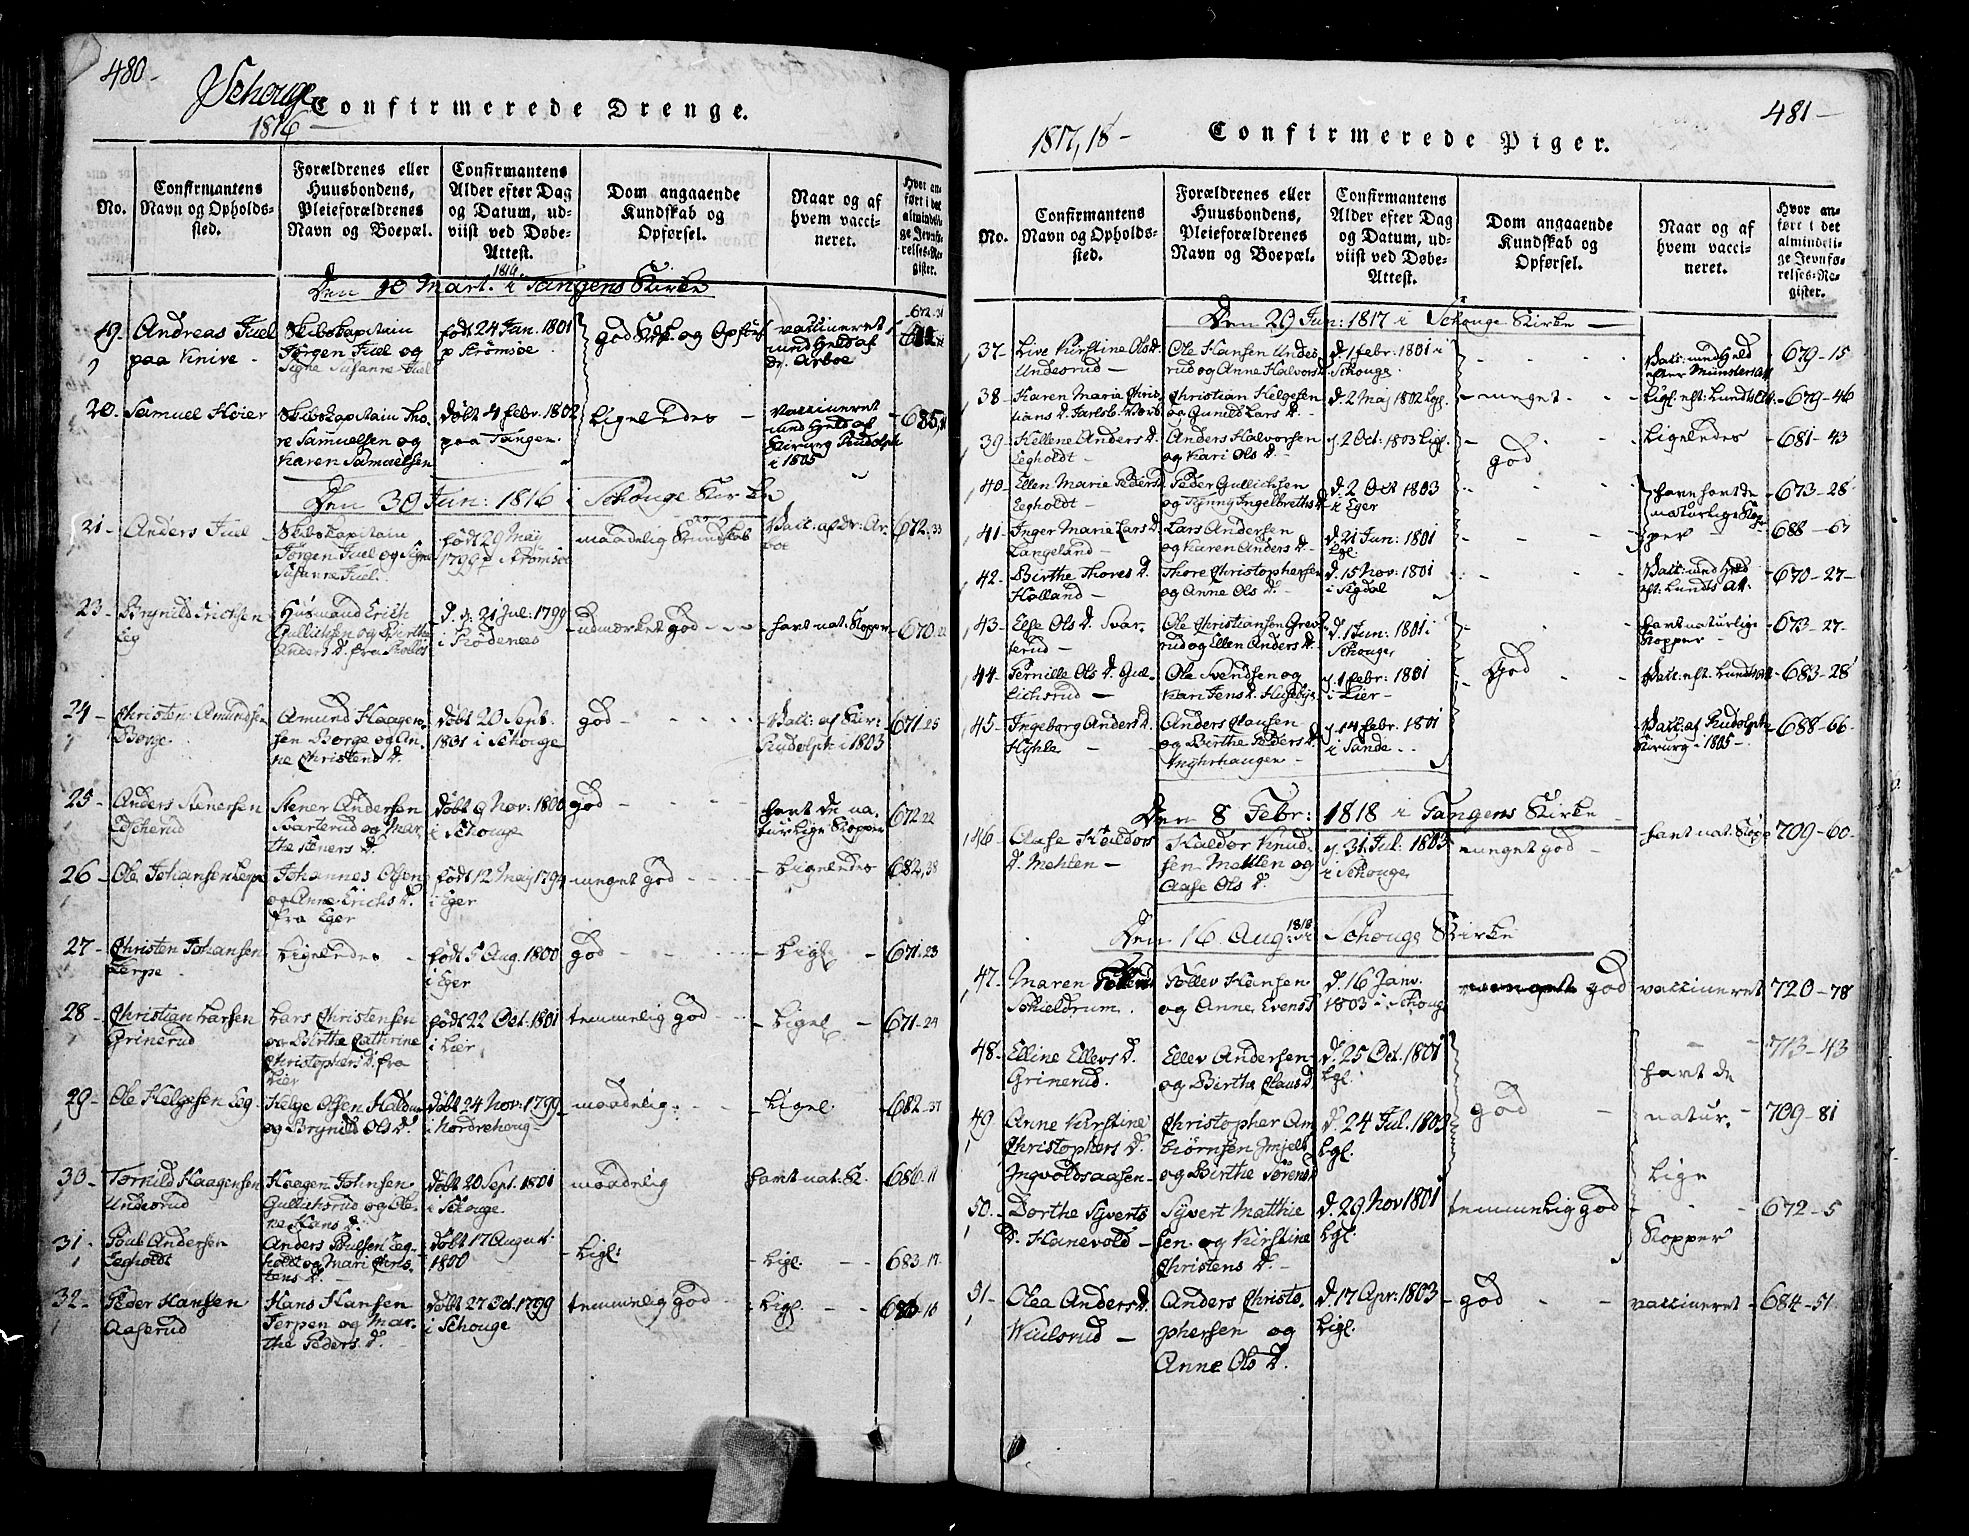 480-
Schouge
Confirmerede Drenge.
1816
No.
Confirmantens Navn og Opholds-sted.
Forældrenes eller Huusbondens, Pleieforældrenes Navn og Boepæl.
Confirmantens Alder efter Dag og Datum, ud-viist ved Døbe-Attest.
Dom angaaende Kundskab og Opførsel.
Naar og af hvem vacci-neret.
Hvor an-ført i det almindeli-ge Jevnfø-relses-Re-gister.
Den 10 Mart. 1816 i Tangens Kirke
19- Andreas Juel paa Knive - Skibskapitain Jørgen Juel og Signe Susanne Juel født 24 Jan. 1801 p Strømsøe god Kdsk. og Opførs vaccineret med Held af Dr. Arboe 672-31
20- Samuel Høier Skibskapitain Tho-re Samuelsen og Karen Samuelsen døbt 4 febr. 1802 paa Tangen Ligeledes vaccineret med Held af Kirurg Rudolph i 1805 685
Den 30 Jun: 1816 i Schouge Kirke
21- Anders Juel Skibskapitain Jørgen Juel og Signe Susanne Juel. født 29 May 1799 p Strømsøe maadelig Kundskab Vacc: af Dr: Ar-boe 672-33
23- Brynild Erichsen Eeg Huusmand Erich Gullichsen og Birthe Anders D. fra d. 21 Jul: 1799 i Rødenæs udmærket god - havt nat. Kopper 670
24- Christen Amundsen Borge Amund Haagen-sen Borge og An-ne Christens D. døbt 20 Sept. 1801 i Schouge god - Vacc: af Kir: Rudolph i 1803 671-25
25- Anders Stenersen Stener Andersen Svarterud og Mar-the Steners D. døbt 9 Nov: 1800 i Schouge god - havt de na-turlige Kopper 672-22
26- Ole Johansen Terpe Johannes Olsen og Anne Erichs D. fra Eger født 12 May 1794 i Eger meget god - Ligeledes 682-38
27- Christen Johansen Terpe - Ligeledes - født 5 Aug. 1800 i Eger god - Ligl. 671-23
28- Christian Larsen Grinerud Lars Christensen og Birthe Cathrine Christophers D. fra Lier født 22 Oct: 1801 i Lier temmelig god - Ligel. - 671-24
29- Ole Helgesen Eeg Helge Olsen og Brynild Ols D. døbt 24 Nov: 1799 i Nordrehoug - maadelig - Ligel. - 682-37
30- Haagensen Undesrud Haagen Johnsen Gullichsrud og Ole-ne Hans D. døbt 20 Sept. 1801 i Schouge maadelig havt nat. K. 686-11
31- Poul Andersen Eegholdt Anders Poulsen Eeg-holdt og Mari Chris-tens D. - døbt 17 August 1800 - Ligl: - Ligl. - 683-17
32- Peder Hansen Aaserud Hans Hansen Terpen og Mar-the Peders D. døbt 27 Oct. 1799 i Schouge temmelig god - Ligl. - 686-10
481-
1817, 18-
Confirmerede Piger.
No.
Confirmantens Navn og Opholds-sted.
Forældrenes eller Huusbondens, Pleieforældrenes Navn og Boepæl.
Confirmantens Alder efter Dag og Datum, ud-viist ved Døbe-Attest.
Dom angaaende Kundskab og Opførsel.
Naar og af hvem vacci-neret.
Hvor an-ført i det almindeli-ge Jevnfø-relses-Re-gister.
Den 29 Jun: 1817 i Schouge Kirke -
37- Live Kirstine Ols D. Undesrud - Ole Hansen Undes-rud og Anne Halvors D. d. 1 febr: 1801 i Schouge. Vacc: med Held efter Munsters Att 679-15
38- Karen Maria Chris-tians D. Christian Helgesen og Gunild Lars D. - d. 2 Maj 1802 Lgl. - meget - Ligl. eft: Lunds Att: 679-46
39- Hellene Anders D. Eegholdt - Anders Halvorsen og Kari Ols D. - d. 2 Oct: 1803 Ligl. god Ligeledes - 681-43
40- Ellen Marie Peders D. Eegholdt - Peder Gullichsen og Ingelbreths D. d. 2 Oct 1803 i Eger have havt de naturlige Kop-per 673-28
41- Inger Marie Lars D. Langeland - Lars Andersen og Karen Anders D. - d. 21 Jun: 1801 Lgl. 688-67
42- Birthe Thores D. Holland - Thore Christophersen og Anne Ols D. - d. 15 Nov: 1801 i Sigdal Vacc: med Held eft: Lunds Att. 670-27-
43- Else Ols D. Svar-terud - Ole Christiansen rud og Ellen Anders D. d. 1 Jun: 1801 i Schouge havt naturlige Kopper - 673-27-
44- Pernille Ols D. Gul-lichsrud - Ole Svendsen og Kari Jens D. Huseby d. 1 febr: 1801 i Lier - God Vacc: eft. Lunds Att 683-28
45- Ingeborg Anders D. Hyhle - Anders Clausen og Birthe Peders D. d. 14 febr. 1801 i Sande - Vacc: af Rudolph Kirurg - 1805 - 688-66
Den 8 Febr: 1818 i Tangens Kirke -
46- Aase Haldors D. Mehlen - Haldor Knud-sen Mehlen og Aase Ols D. d. 31 Jul: 1803 i Schouge meget god - havt nat: Kop 709-60-
Den 16 Aug: 1818 i Schouge Kirke
47- Maren Schieldrum. Tollev Hansen og Anne Evens D d. 16 Janv. 1803 i Schouge meget god vaccineret 720-78
48- Elline Ellevs D. Grinerud. Ellev Andersen og Birthe Claus D. d. 25 Oct. 1801 Lgl. god havt de natur-lige Kopper 713-43
49 Anne Kirstine Christophers D. Ingvoldsaasen - Christopher Am-biørnsen og Birthe Sørens D d. 24 Jul. 1803 Lgl. 709-81
50.- Dorthe Syverts D. Hanevold - Syvert Matthie-sen og Kirstine Christens D. - d. 29 Nov 1801 Lgl. temmelig god 672-5
51- Olea Anders D. Wiulsrud - Anders Christo-phersen og Anne Ols D. d. 17 Apr: 1803 Ligl. - god - vaccineret 684-51